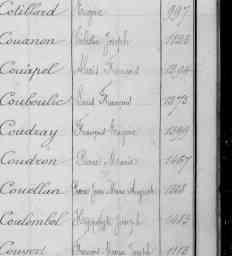 Cotillard Eugène 997
Couanon Célestin Joseph
Couapel Alexis François 1294
Couboulic Louis François 1273
Coudray François Eugène 1399
Coudron Pierre Marie 1467
Couellan Pierre Jean Marie Auguste
Coulombel Hippolyte Joseph 1413
Couvert Joseph 1112